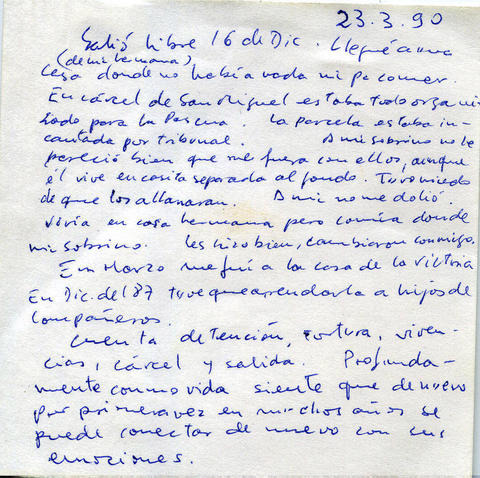 23.3.90
Salió libre 16 de Dic. Llegué a una
(de mi hermana)
casa donde no había nada ni pa comer.
En cárcel de San Miguel estaba todo organi-
zado para la Pascua. La parcela estaba in-
cautada por tribunal. A mi sobrino no le
pareció bien que me fuera con ellos, aunque
él vive en casita separada al fondo. Tuvo miedo
de que los allanaran. A mi no me dolió.
Vivía en casa hermana pero comía donde
mi sobrino. Les hizo bien, cambiaron conmigo.
En Marzo me fui a la casa de la Victoria
En Dic. del 87 tuve que arrendarla a hijos de
compañeros.
Cuenta detención, tortura, viven-
cias, cárcel y salida. Profunda-
mente conmovida siente que de nuevo
por primera vez en muchos años se
puede conectar de nuevo con sus
emociones.